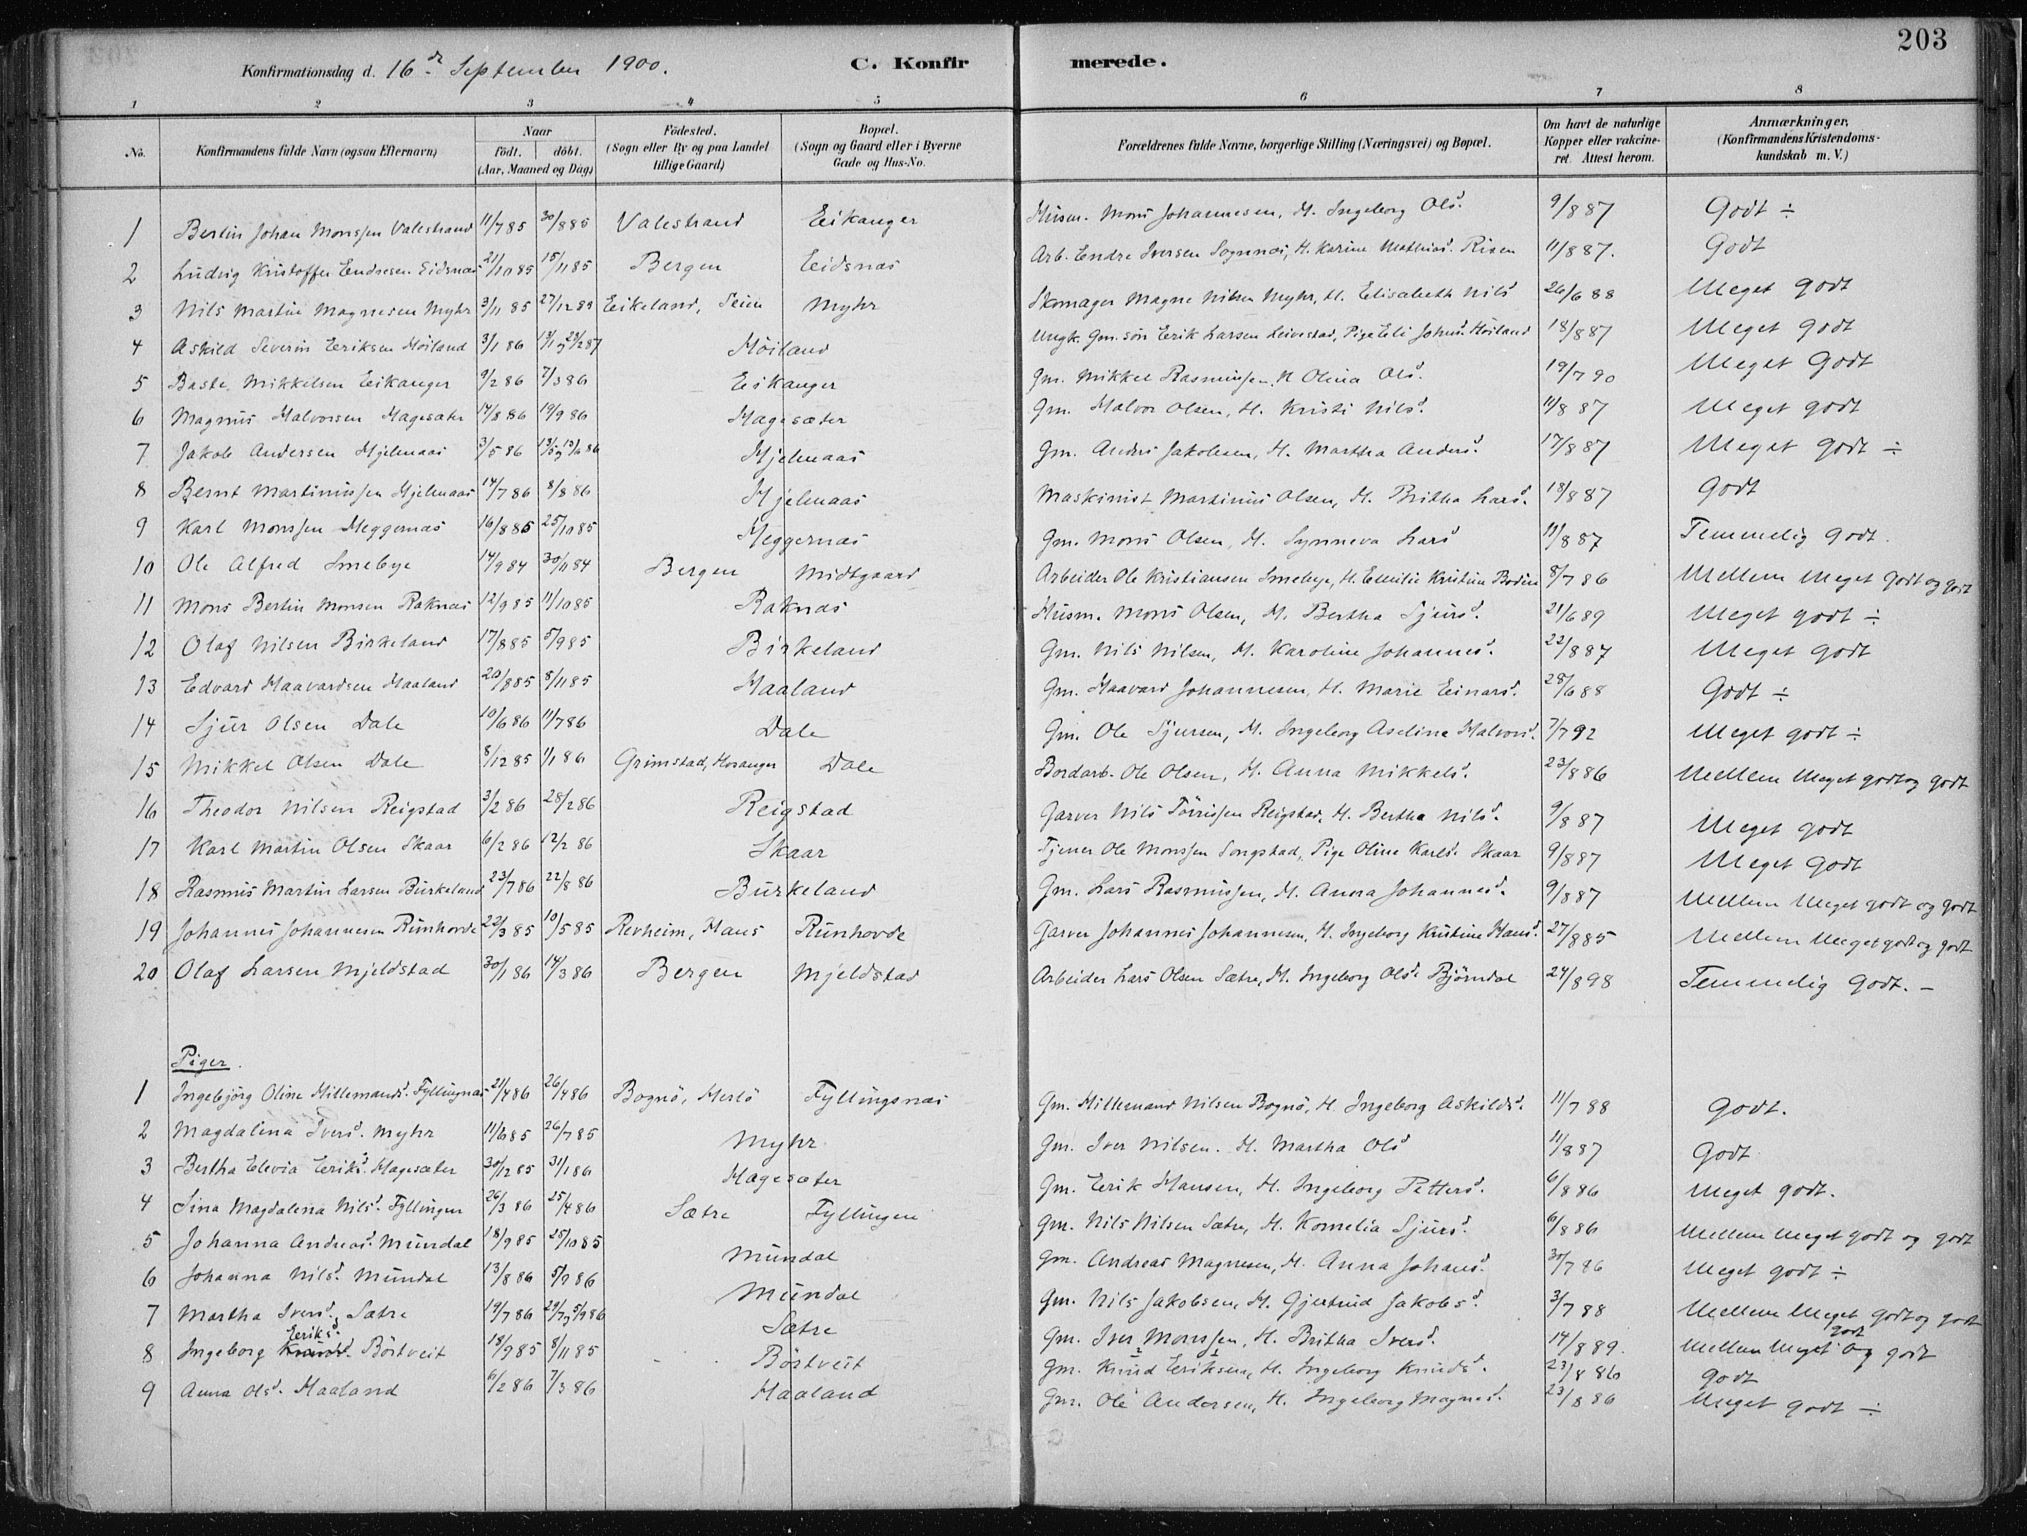 203
Konfirmationsdag d. 16de September 1900. C. Konfirmerede.
1 2 3 4 5 6 7 8
No. Konfirmandens fulde Navn (ogsaa Efternavn) Naar født. døbt. (Aar, Maaned og Dag) Födested. (Sogn eller By og paa Landet tillige Gaard) Bopæl. (Sogn og Gaard eller i Byerne Gade og Hus-No. Forældrenes fulde Navne, borgerlige Stilling (Næringsvei) og Bopæl. Om havt de naturlige Kopper eller vakcineret. Attest herom. Anmærkninger, (Konfirmandens Kristendomskundskab m. V.)
1 Bertin Johan Monssen Valestrand 11/7 85 30/8 85 Valestrand Eikanger Husm. Mons Johannesen, H. Ingeborg Olsd. 9/8 87 Godt ÷
2 Ludvig Kristoffer Endresen Eidsnæs 21/10 85 15/11 85 Bergen Eidsnæs Arb. Endre Iversen Sognnæs, H. Karine Mathiasd. Risen 11/8 87. Godt
3 Nils Martin Magnesen Myhr 3/11 85 27/12 89 Eikeland, Seim Myhr Skomager Magne Nilsen Myhr, H. Elisabeth Nilsd 26/6 88 Meget godt
4 Askild Severin Eriksen Höiland 3/1 86 13/1 og 23/2 87 Höiland Ungk. Gm. søn Erik Larsen Leivestad, Pige Eli Johnsd. Höiland 18/8 87 Meget godt
5 Baste Mikkelsen Eikanger 9/2 86 7/3 86 Eikanger Gm. Mikkel Rasmussen, H Olina Olsd. 19/7 90 Meget Godt
6 Magnus Halvorsen Hagesæter 14/8 86 19/9 86 Hagesæter Gm. Halvor Olsen, H. Kristi Nilsd. 11/8 87 Meget godt
7 Jakob Andersen Hjelmaas 3/5 86 13/5 og 13/6 86 Hjelmaas Gm. Anders Jakobsen, H. Martha Andersd. 17/8 87 Meget godt ÷
8 Bernt Martinussen Hjelmaas 14/7 86 8/8 86 Hjelmaas Maskinist Martinus Olsen, H. Britha Larsd. 18/8 87 Godt
9 Karl Monssen Heggernæs 16/8 85 25/10 85 Heggernæs Gm. Mons Olsen, H. Synneva Larsd 11/8 87 Temmelig Godt.
10 Ole Alfred Smebye 14/9 84 30/11 84 Bergen Midtgaard Arbeider Ole Kristiansen Smebye, H. Emilie Kristine Bodine 8/7 86 Mellem Meget Godt og godt
11 Mons Bertin Monsen Raknæs 12/9 85 11/10 85 Raknæs Husm. Mons Olsen, H. Bertha Sjursd. 21/6 89 Meget godt ÷
12 Olaf Nilsen Birkeland 17/8 85 5/9 85 Birkeland Gm. Nils Nilsen, H. Karoline Johannesd. 22/8 87 Meget godt
13 Edvard Haavardsen Haaland 20/8 85 8/11 85 Haaland Gm. Haavard Johannesen, H. Marie Einarsd. 28/6 88 Godt ÷
14 Sjur Olsen Dale 10/6 86 11/7 86 Dale Gm. Ole Sjursen, H. Ingeborg Aselina Halvorsd. 7/7 92 Meget godt ÷
15 Mikkel Olsen Dale 8/12 85 1/1 86 Grimstad, Hosanger Dale Bordarb. Ole Olsen, H. Anna Mikkelsd. 23/8 86 Mellem Meget godt og godt
16 Theodor Nilsen Reigstad 3/2 86 28/2 86 Reigstad Garver Nils Törrissen Reigstad, H. Bertha Nilsd. 9/8 87 Meget godt
17 Karl Martin Olsen Skaar 6/2 86 12/2 86 Skaar Tjener Ole Monssen Songstad, Pige Oline Karlsd. Skaar 9/8 87 Meget godt
18 Rasmus Martin Larsen Burkeland 23/7 86 22/8 86 Burkeland Gm. Lars Rasmussen, H. Anna Johannesd. 9/8 87 Mellem Meget godt og godt
19 Johannes Johannesen Runhovde 22/3 85 10/5 85 Revheim, Haus Runhovde Garver Johannes Johannesen, H. Ingeborg Kristine Hansd. 27/8 85 Mellem Meget godt og godt
20 Olaf Larsen Mjeldstad 30/1 86 14/3 86 Bergen Mjeldstad Arbeider Lars Olsen Sætre, H. Ingeborg Olsd. Björndal 24/8 98 Temmelig Godt. –
Piger.
1 Ingebjörg Oline Hillemandsd. Fyllingnæs 21/4 86 26/4 86 Bognö, Herlö Fyllingsnæs Gm. Hillemand Nilsen Bognö, H. Ingeborg Askildsd. 11/7 88 Godt.
2 Magdalena Iversd. Myhr 11/6 85 26/7 85 Myhr Gm. Iver Nilsen. H. Martha Olsd 11/8 87 Godt
3 Bertha Elevia Eriksd. Hagesæter 30/12 85 31/1 86 Hagesæter Gm. Erik Hansen, H. Ingeborg Pettersd. 6/8 86 Meget godt.
4 Sina Magdalena Nilsd. Fyllingen 26/3 86 25/4 86 Sætre Fyllingen Gm. Nils Nilsen Sætre, H. Kornelia Sjursd. 6/8 86 Mellem Meget godt og godt
5 Johanna Andreasd. Mundal 18/9 85 25/10 85 Mundal Gm. Andreas Magnesen, H. Anna Johansd. 30/7 86 Meget godt ÷
6 Johanna Nilsd. Mundal 13/8 86 5/9 86 Mundal Gm. Nils Jakobsen, H. Gjertrud Jakobsd. 3/7 88 Mellem Meget godt og godt
7 Martha Iversd. Sætre 19/7 86 29/7 og 5/9 86 Sætre Gm. Iver Monssen, H. Britha Iversd. 14/8 89. Mellem Meget godt og godt
8 Ingeborg Eriksd. Böstveit 18/9 85 8/11 85 Böstveit Gm. Knud Eriksen, H. Ingeborg Knudsd. 23/8 86 Godt
9 Anna Olsd. Haaland 6/2 86 7/3 86 Haaland Gm. Ole Andersen, H. Ingeborg Magnesd. 23/8 86 Meget godt ÷